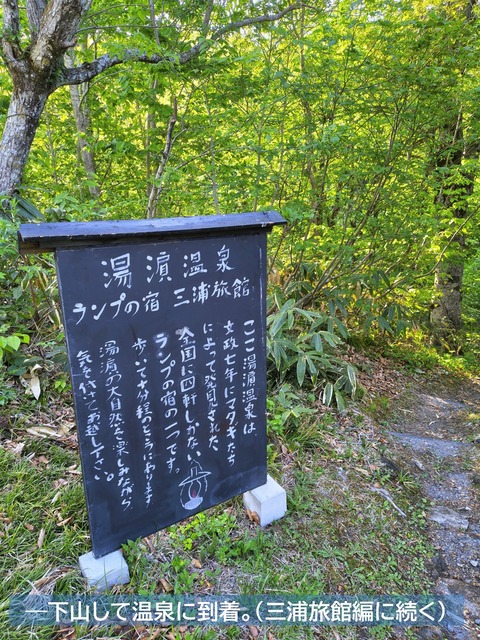 湯濵温泉
ランプの宿 三浦旅館
ここ湯濵温泉は
文政七年にマタギたち
によって発見された
全国に四軒しかない
ランプの宿の一つです。
歩いて十分程のところにあります
湯濵の大自然を楽しみながら
気を付けてお越し下さい。
―下山して温泉に到着。（三浦旅館編に続く）